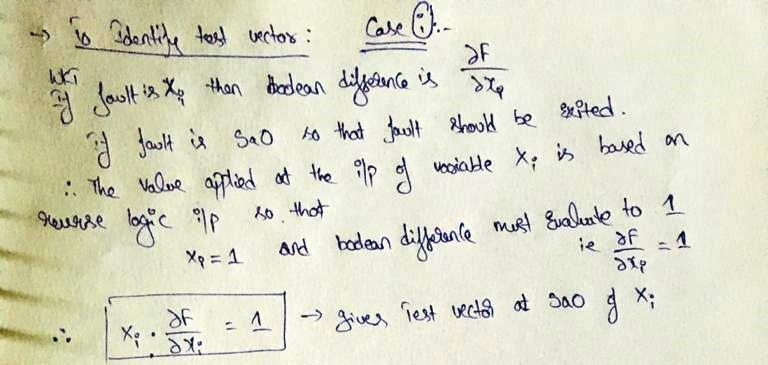 → To Identify test vector : Case (i):-
WKT
if fault is Xi then boolean difference is ∂F/∂xi
if fault is Sa0 so that fault should be exited.
∴ The value applied at the i/p of variable Xi is based on
reverse logic i/p so that
Xi = 1 and boolean difference must Evaluate to 1
ie ∂F/∂xi = 1
∴ Xi . ∂F/∂xi = 1 → gives Test vector at Sa0 of Xi